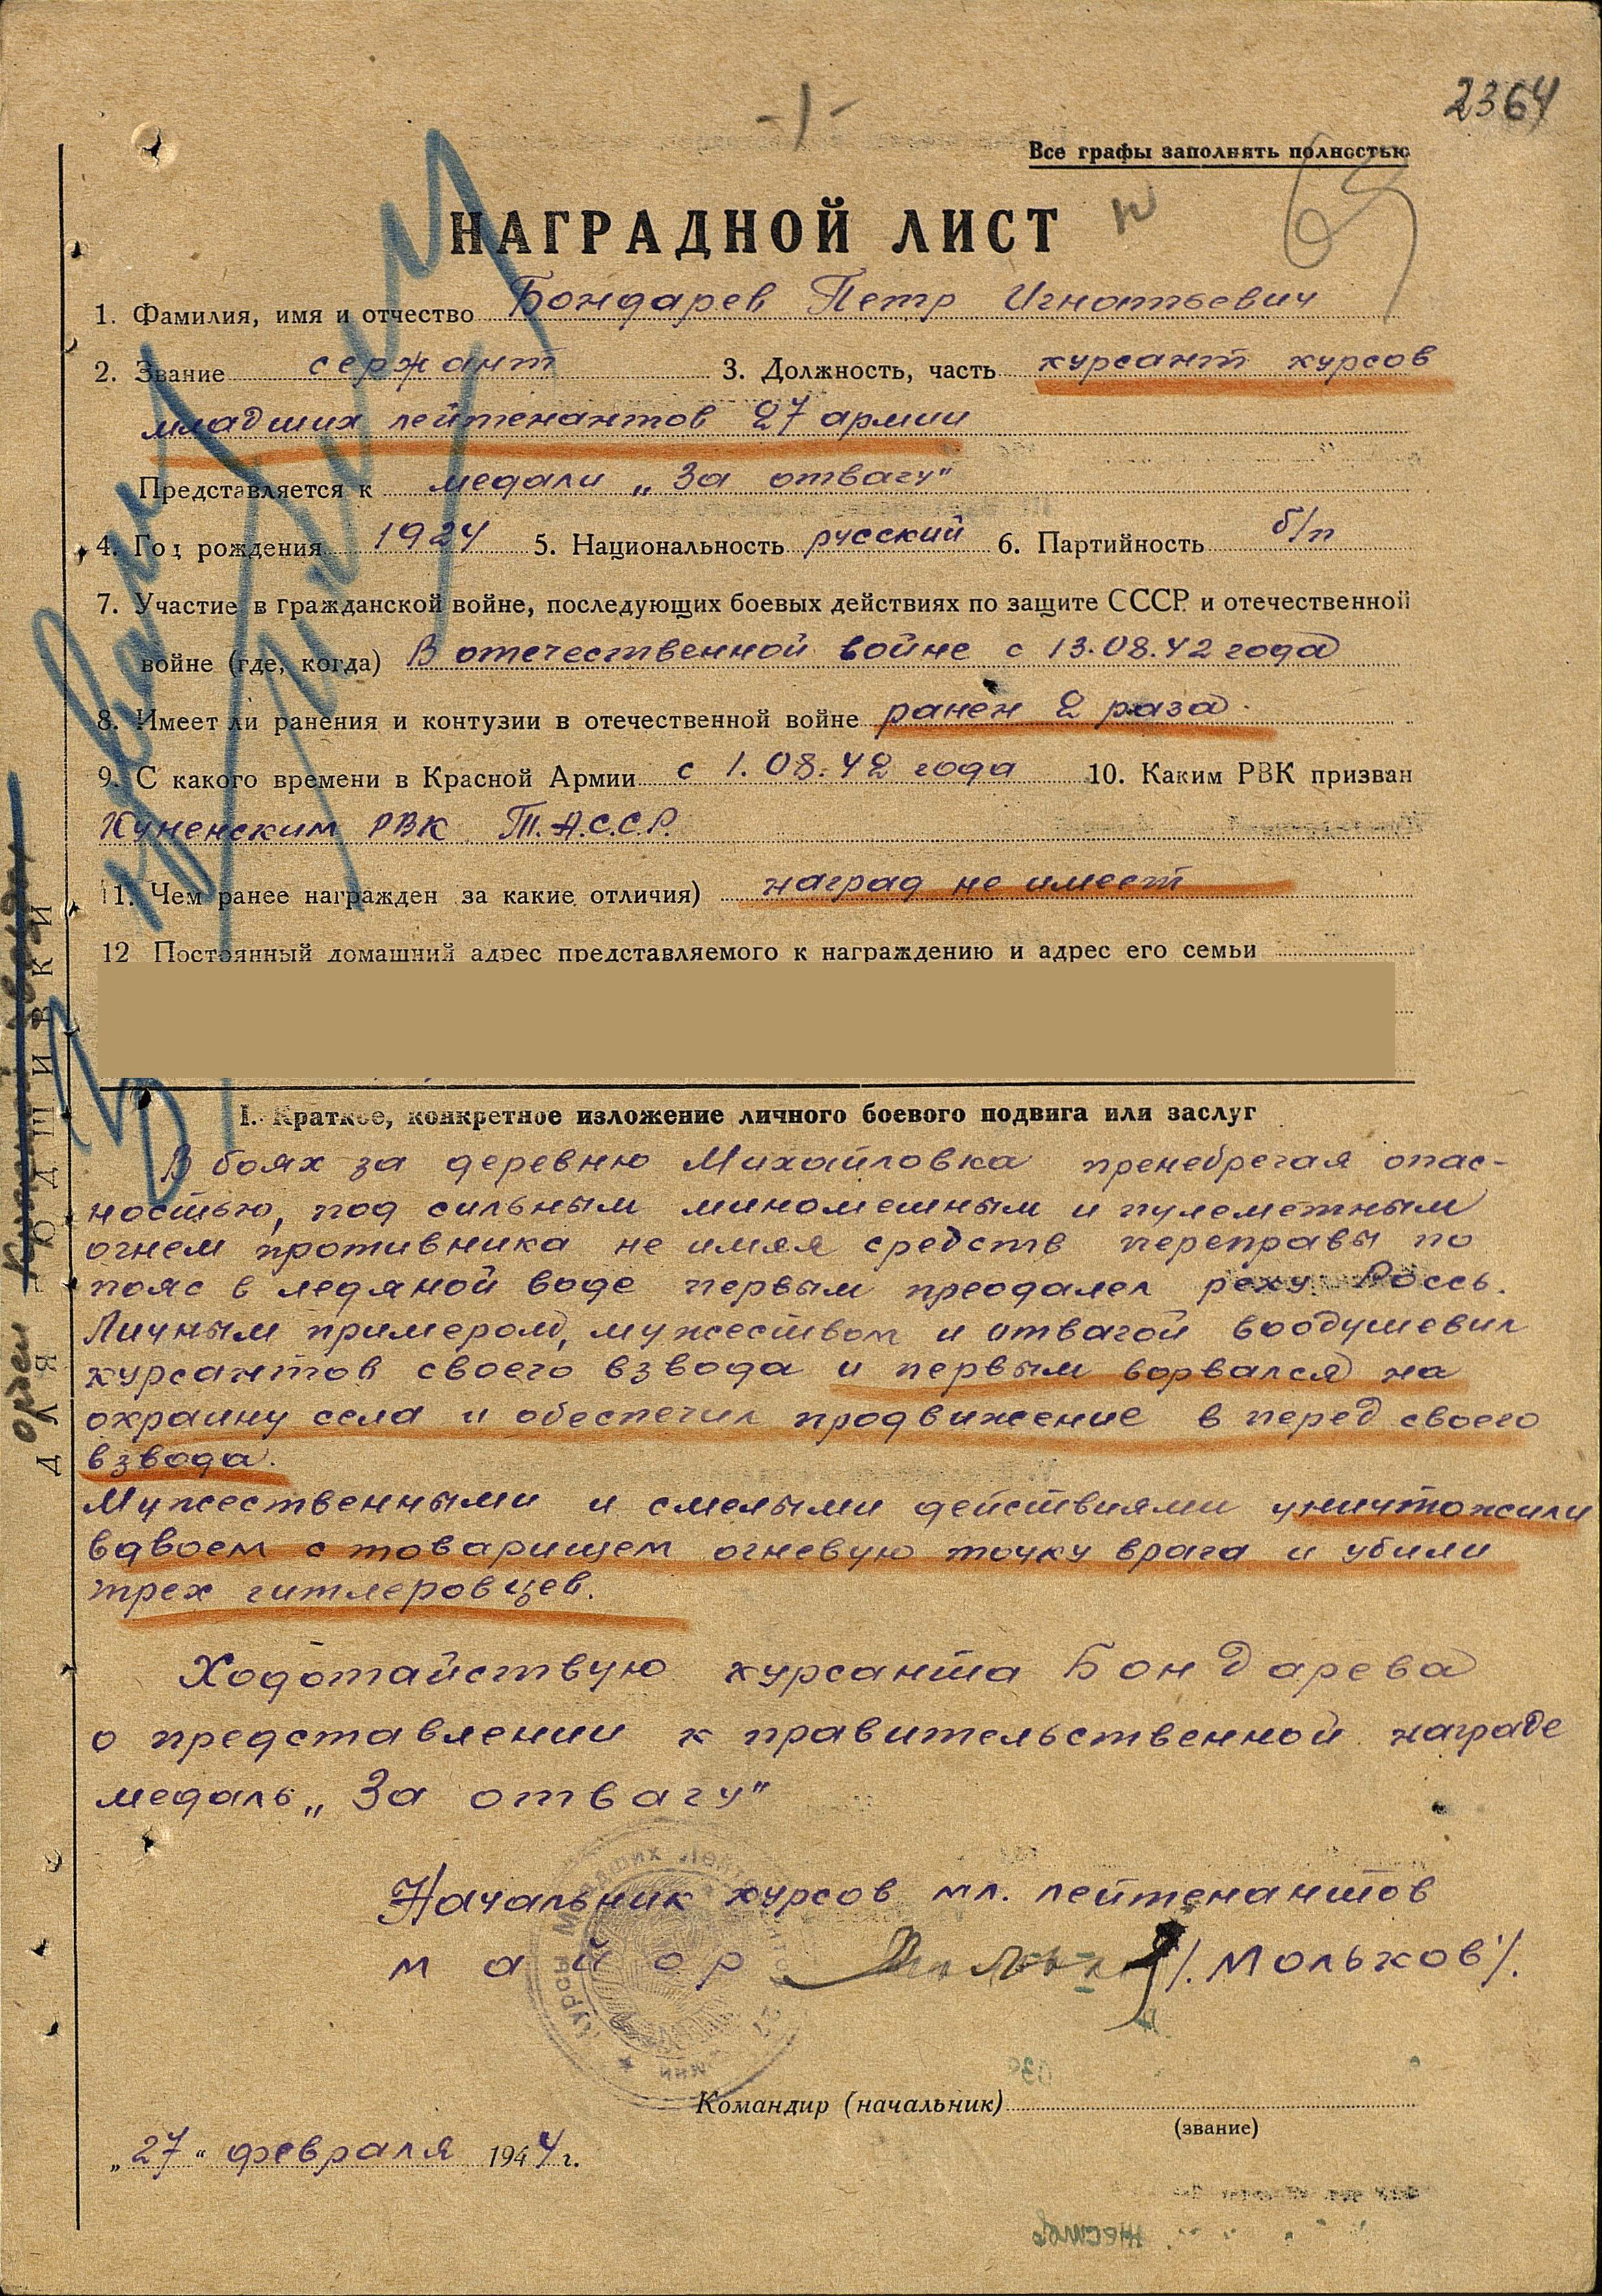 2364
-1-
Все графы заполнять полностью
НАГРАДНОЙ ЛИСТ
1. Фамилия, имя и отчество Бондарев Петр Игнатьевич
2. Звание сержант 3. Должность, часть курсант курсов
младших лейтенантов 27 армии
Представляется к медали „За отвагу"
4. Год рождения 1924 5. Национальность русский 6. Партийность б/п
7. Участие в гражданской войне, последующих боевых действиях по защите СССР и отечественной
войне (где, когда) В отечественной войне с 13.08.42 года
8. Имеет ли ранения и контузии в отечественной войне ранен 2 раза.
9. С какого времени в Красной Армии с 1.08.42 года 10. Каким РВК призван
РВК Т.А.С.С.Р.
11. Чем ранее награжден за какие отличия) наград не имеет
12 Постоянный домашний адрес представляемого к награждению и адрес его семьи
I. Краткое, конкретное изложение личного боевого подвига или заслуг
В боях за деревню Михайловка пренебрегая опас-
ностью, под сильным минометным и пулеметным
огнем противника не имея средств переправы по
пояс в ледяной воде первым преодалел реку Россь.
Личным примером, мужеством и отвагой воодушевил
курсантов своего взвода и первым ворвался на
окраину села и обеспечил продвижение в перед своего
взвода.
Мужественными и смелыми действиями уничтожили
вдвоем с товарищем огневую точку врага и убили
трех гитлеровцев.
Ходотайствую курсанта Бондарева
о представлении к правительственной награде
медаль „За отвагу"
Начальник курсов мл. лейтенантов
майор /Мольков/.
Командир (начальник)
(звание)
„27" февраля 1944 г.
ДЛЯ ПОДШИВКИ